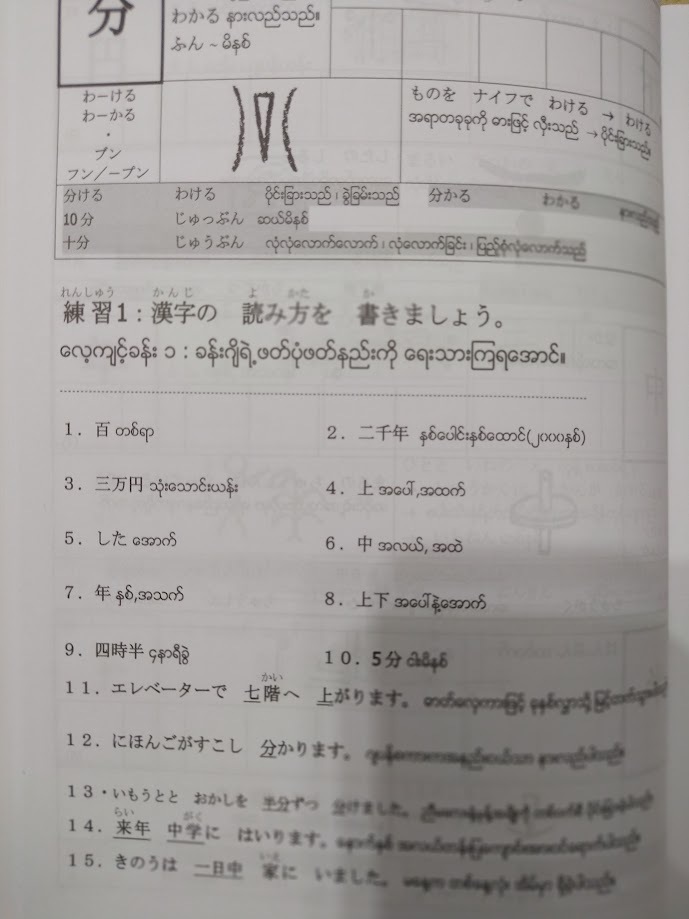 分
わかる နားလည်သည်။
ふん ~ မိနစ်
わーける
わーかる
・
ブン
フン／ープン
ものを ナイフで わける → わける
အရာတခုခုကို ဓားဖြင့် လှီးသည် → ပိုင်းခြားသည်။
分ける わける ပိုင်းခြားသည် ၊ ခွဲခြမ်းသည် 分かる わかる
10分 じゅっぷん ဆယ်မိနစ်
十分 じゅうぶん လုံလုံလောက်လောက် ၊ လုံလောက်ခြင်း ၊ ပြည့်စုံလုံလောက်သည်
れんしゅう かんじ よ かた か
練習1：漢字の 読み方を 書きましょう。
လေ့ကျင့်ခန်း ၁ : ခန်းဂျိရဲ့ ဖတ်ပုံဖတ်နည်းကို ရေးသားကြရအောင်။
1．百 တစ်ရာ 2．二千年 နှစ်ပေါင်းနှစ်ထောင်(၂၀၀၀နှစ်)
3．三万円 သုံးသောင်းယန်း 4．上 အပေါ်,အထက်
5．した အောက် 6．中 အလယ်, အထဲ
7．年 နှစ်,အသက် 8．上下 အပေါ်နဲ့အောက်
9．四時半 ၄နာရီခွဲ 10．5分 ငါးမိနစ်
かい
11．エレベーターで 七階へ 上がります。
12．にほんごがすこし 分かります。
13・いもうとと おかしを 半分ずつ 分けました。
らい がく
14．来年 中学に はいります。
いえ
15．きのうは 一日中 家に いました。